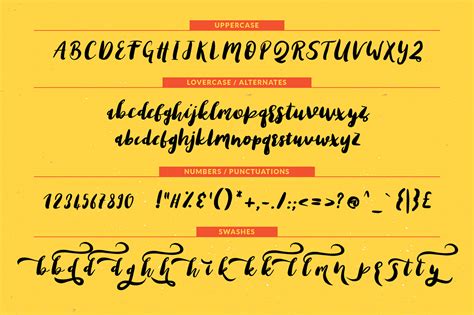 UPPERCASE
ABCDEFGHIJKLMNOPQRSTUVWXYZ
LOVERCASE / ALTERNATES
abcdefghijklmnopqrstuvwxyz
abcdefghijklmnopqrstuvwxyz
NUMBERS / PUNCTUATIONS
1234567890 !"#%£'()*+,-./:;<=>?@^_`{|}
SWASHES
bbddghhikkllmnpqstty